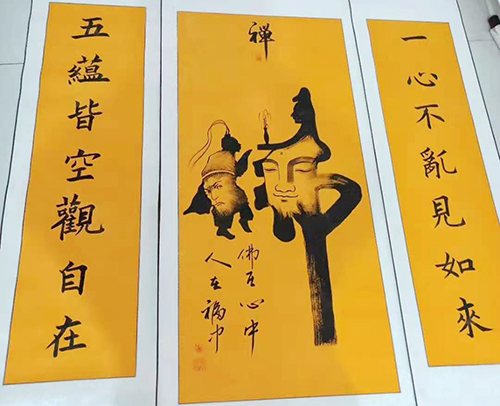 一心不亂見如來
禅
佛在心中
人在福中
五蘊皆空觀自在